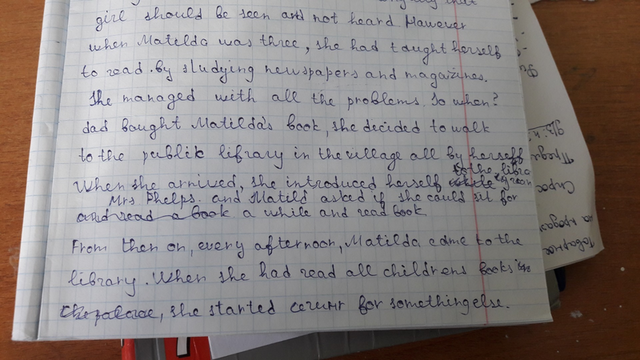 that
girl should be seen and not heard However
when Matilda was three, she had taught herself
to read by studying newspapers and magazines.
She managed with all the problems. So when?
dad bought Matilda's book, she decided to walk
to the public library in the village all by herself
to the libra
When she arrived, she introduced herself
Mrs Phelps. and Matild asked if she could sit for
and read a book a while and read book
From then on, every afternoon, Matilda came to the
library. When she had read all childrens books in
the palace, she started for something else.